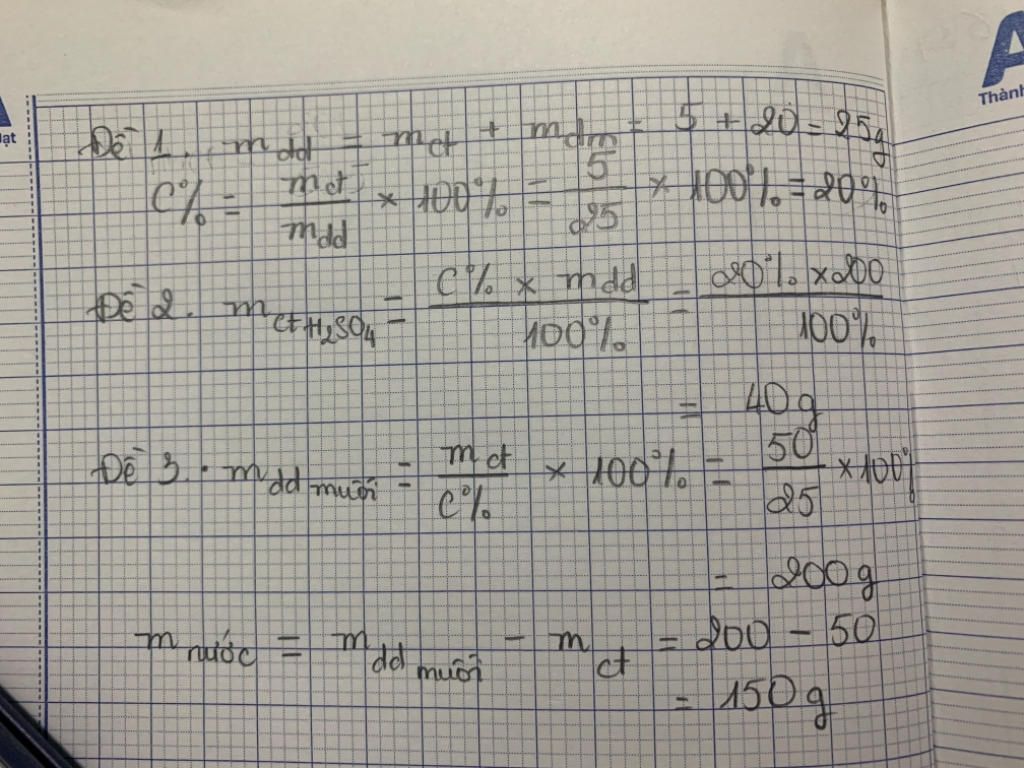 A
Thành
ạt
Đề 1. m dd = m ct + m dm = 5 + 20 = 25g
C% = m ct / m dd × 100% = 5 / 25 × 100% = 20%
Đề 2. m ct H2SO4 = C% × m dd / 100% = 20% × 200 / 100%
= 40g
Đề 3. m dd muối = m ct / C% × 100% = 50 / 25 × 100%
= 200g
m nước = m dd muối - m ct = 200 - 50
= 150g